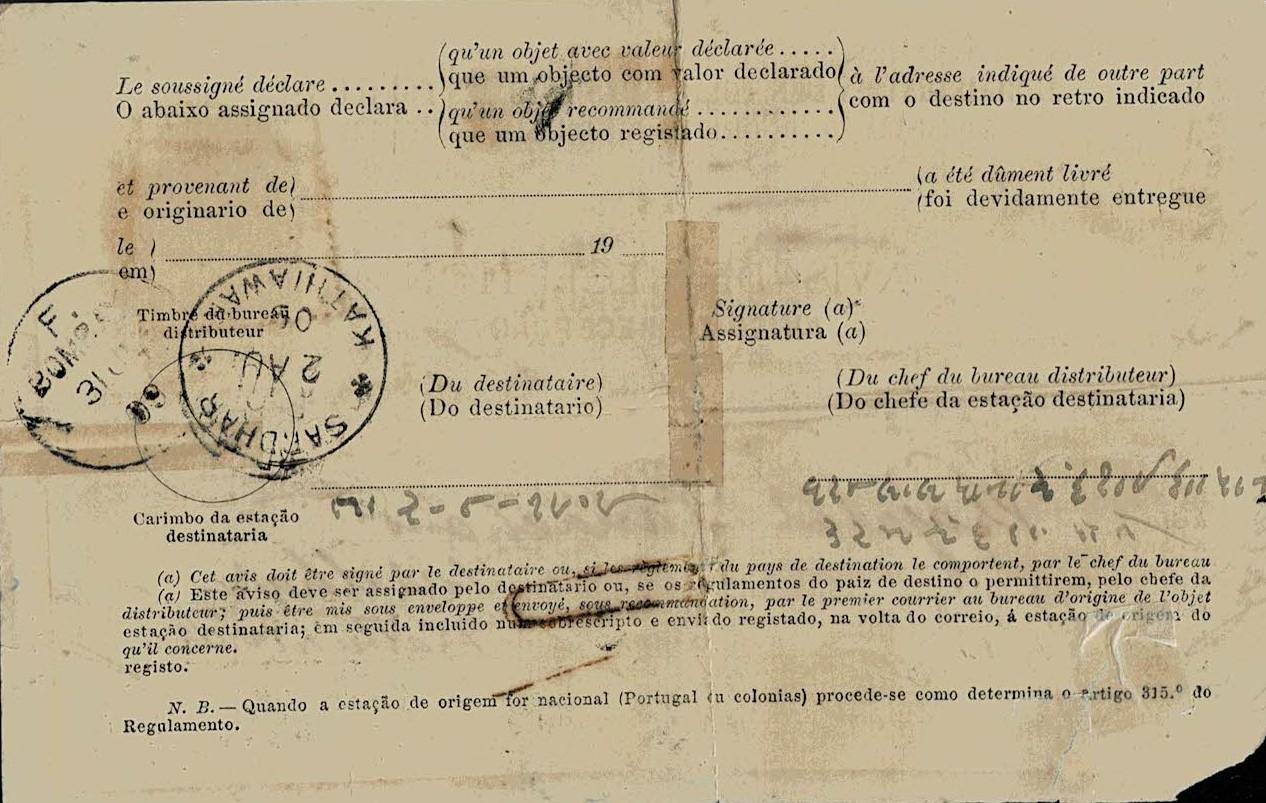 (qu'un objet avec valeur déclarée .....)
Le soussigné déclare ......... que um objecto com valor declarado à l'adresse indiqué de outre part
O abaixo assignado declara .. qu'un objet recommandé ............ com o destino no retro indicado
que um objecto registado..........
et provenant de) (a été dûment livré
e originario de) (foi devidamente entregue
le ) 19
em)
KATHIAWAR
SARDHAR
2 AU
06
BOMBAY
31
06
Timbre du bureau
distributeur
Signature (a)
Assignatura (a)
(Du destinataire) (Du chef du bureau distributeur)
(Do destinatario) (Do chefe da estação destinataria)
Carimbo da estação
destinataria
(a) Cet avis doit être signé par le destinataire ou, si les règlements du pays de destination le comportent, par le chef du bureau
(a) Este aviso deve ser assignado pelo destinatario ou, se os regulamentos do paiz de destino o permittirem, pelo chefe da
distributeur; puis être mis sous enveloppe et envoyé, sous recommandation, par le premier courrier au bureau d'origine de l'objet
estação destinataria; em seguida incluido num sobrescripto e enviado registado, na volta do correio, á estação de origem do
qu'il concerne.
registo.
N. B. — Quando a estação de origem for nacional (Portugal ou colonias) procede-se como determina o artigo 315.º do
Regulamento.